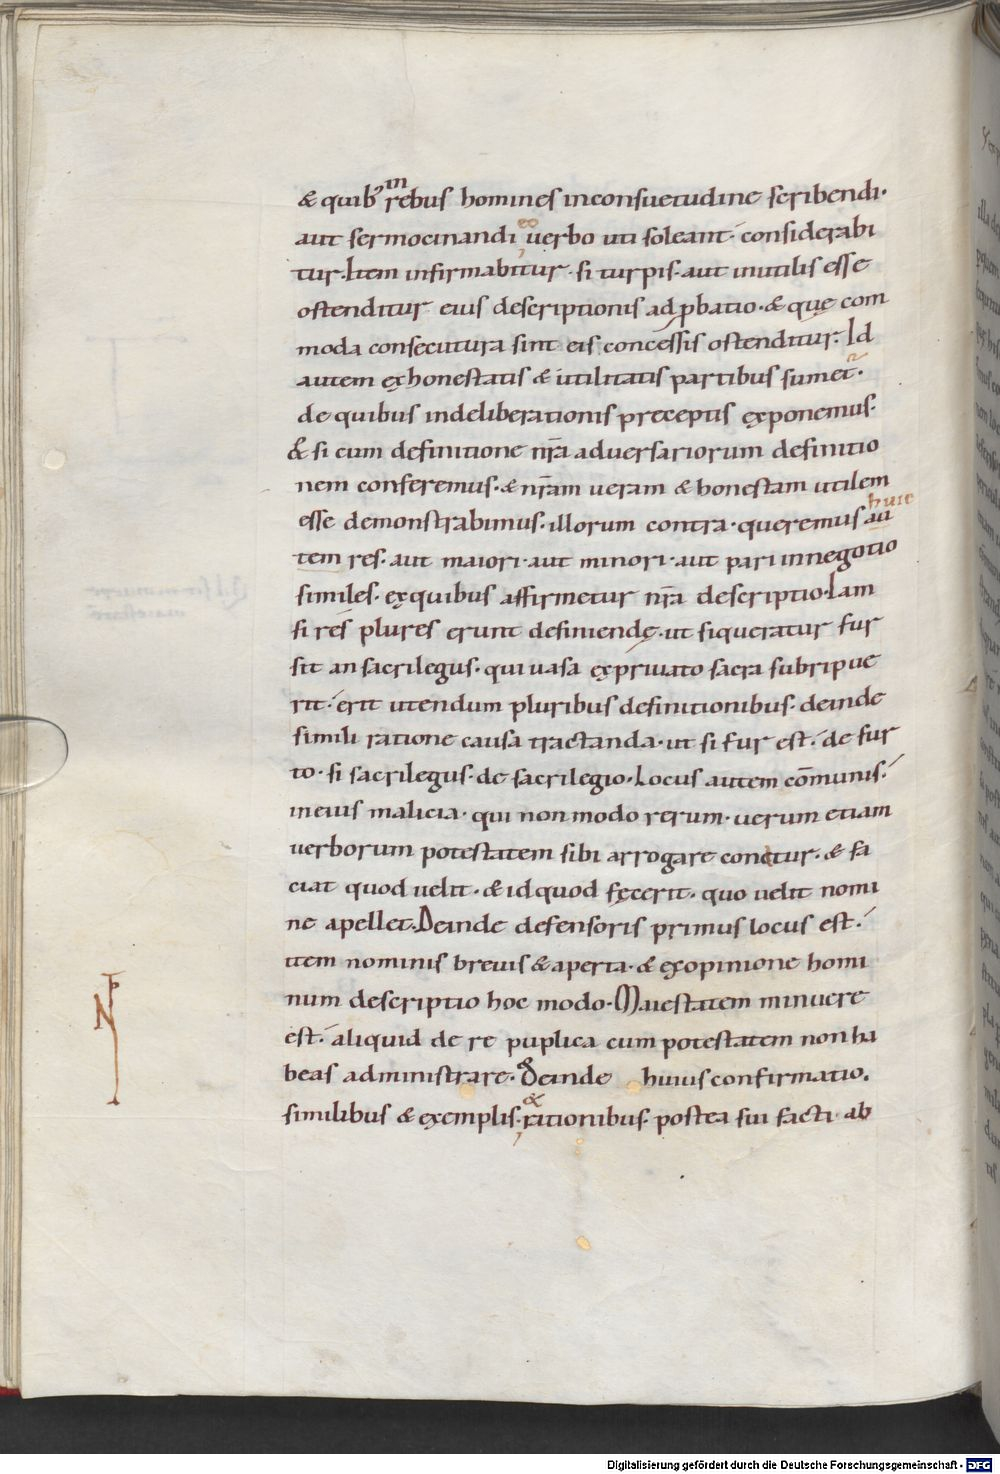 & quib᷒ in rebus homines inconsuetudine scribendi·
aut sermocinandi eo uerbo uti soleant· considerabi
tur· Item infirmabitur· si turpis· aut inutilis esse
ostenditur eius descriptionis adpbatio· & quę com
moda consecutura sint eis concessis ostenditur· Id
autem ex honestatis & utilitatis partibus sumet᷒·
de quibus indeliberationis preceptis exponemus·
& si cum definitione nr̄a aduersariorum definitio
nem conferemus· & nr̄am ueram & honestam utilem
esse demonstrabimus· illorum contra· queremus au huic
tem res· aut maiori· aut minori· aut pari in negotio
similes· ex quibus affirmetur nr̄a descriptio· Iam
si rés plures erunt definiendę· ut si queratur fur
sit an sacrilegus· qui uasa ex priuato sacra subripue
rit· erit utendum pluribus definitionibus· deinde
simili ratione causa tractanda· ut si fur est· de fur
to· si sacrilegus· de sacrilegio· Locus autem cōmunis·
in eius malicia· qui non modo rerum· uerum etiam
uerborum potestatem sibi arrogare conatur· & fa
ciat quod uelit· & id quod fęcerit· quo uelit nomi
ne apellet· Deinde defensoris primus locus est·
item nominis breuis & aperta· & ex opinione homi
num descriptio hoc modo· Maiestatem minuere
est· aliquid de re puplica cum potestatem non ha
beas administrare· Deinde huius confirmatio.
similibus & exemplis· & rationibus· postea sui facti· ab
Digitalisierung gefördert durch die Deutsche Forschungsgemeinschaft - DFG